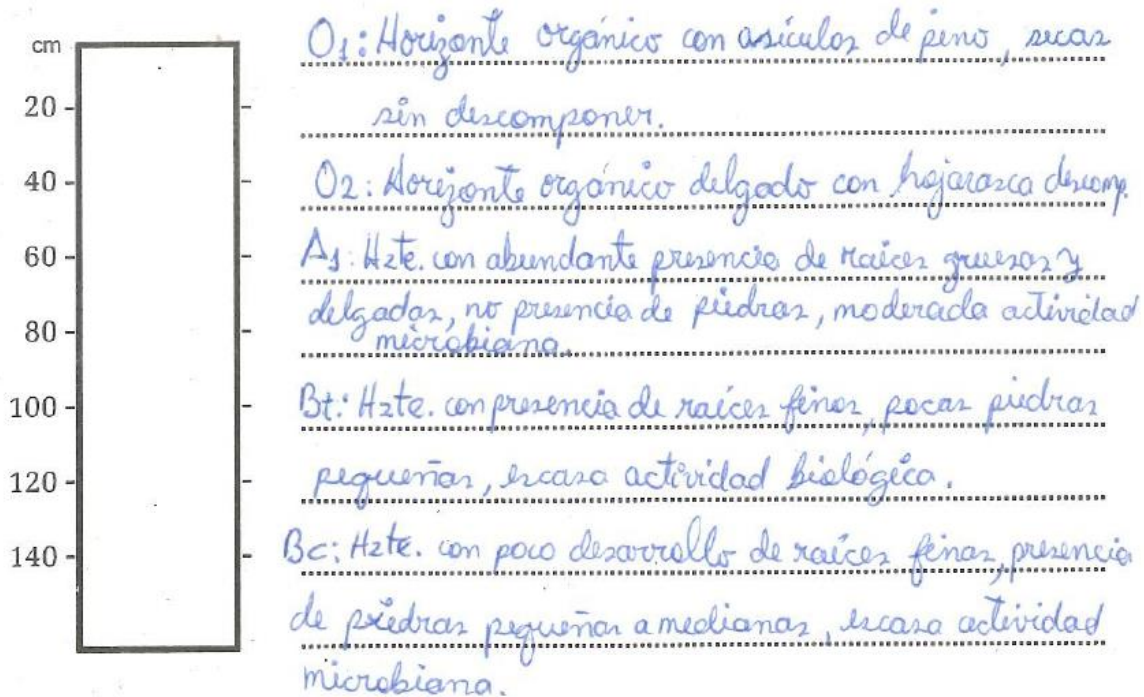 cm
O1: Horizonte orgánico con asículos de pino, secas
20 -
sin descomponer.
40 -
O2: Horizonte orgánico delgado con hojarasca descomp.
60 -
A1: Hzte. con abundante presencia de raíces gruesas y
delgadas, no presencia de piedras, moderada actividad
80 -
microbiana.
100 -
Bt: Hzte. con presencia de raíces finas, pocas piedras
120 -
pequeñas, escasa actividad biológica.
140 -
Bc: Hzte. con poco desarrollo de raíces finas, presencia
de piedras pequeñas a medianas, escasa actividad
microbiana.